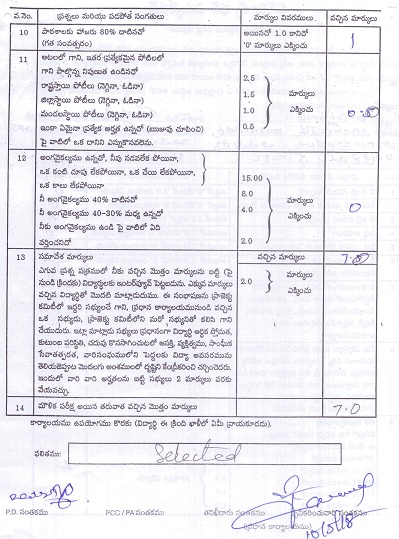 వ.నెం. ప్రశ్నలు మరియు పడపోత సంగతులు మార్కుల వివరములు వచ్చిన మార్కులు
10 పాఠశాలకు హాజరు 80% దాటినచో అయినచో 1.0 కానిచో 1
(గత సంవత్సరం) '0' మార్కులు ఎక్కించు
11 ఆటలలో గాని, ఇతర ప్రత్యేకమైన పోటిలలో
గాని పాల్గొన్న నిపుణత ఉండినచో 2.5
రాష్ట్రస్థాయి పోటీలు (నెగ్గినా, ఓడినా) 1.5 మార్కులు
జిల్లాస్థాయి పోటీలు (నెగ్గినా, ఓడినా) 1.0 ఎక్కించు
మండలస్థాయి పోటీలు (నెగ్గినా, ఓడినా) 0.5
ఇంకా ఏమైనా ప్రత్యేక అర్హత ఉన్నచో (ఋజువు చూపించి)
పై వాటిలో ఒక దానిని ఎన్నుకొనవలెను.
12 అంగవైకల్యము ఉన్నచో, నీవు నడవలేక పోయినా,
ఒక కంటి చూపు లేకపోయినా, ఒక చేయి లేకపోయినా, 15.00
ఒక కాలు లేకపోయినా 8.0
నీ అంగవైకల్యము 40% దాటినచో 4.0 మార్కులు 0
నీ అంగవైకల్యము 40-30% మధ్య ఉన్నచో ఎక్కించు
నీకు అంగవైకల్యము ఉండి పై వాటిలో ఏది 2.0
వర్తించనిచో
13 సమావేశ మార్కులు వచ్చిన మార్కులు
ఎగువ ప్రశ్న పత్రములో నీకు వచ్చిన మొత్తం మార్కులను బట్టి (పై 2.0 మార్కులు
నుండి క్రిందకు) విద్యార్థులకు ఇంటర్వ్యూవ్ పెట్టబడును. ఎక్కువ మార్కులు ఎక్కించు
వచ్చిన విద్యార్థితో మొదటి మాట్లాడుదుము. ఈ సంభాషణను ప్రాజెక్టు
కమిటీలో ఇద్దరి సభ్యులచే గాని, ప్రధాన కార్యాలయమునుండి వచ్చిన
ఒక సభ్యుడు, ప్రాజెక్టు కమిటీలోని మరో సభ్యునితో కలిసి గాని
చేయుదురు. ఇట్లా మాట్లాడు సభ్యులు ప్రధానంగా విద్యార్థి ఆర్థిక స్తోమత,
కుటుంబ పరిస్థితి, చదువు కొనసాగించుటలో ఆసక్తి, వ్యక్తిత్వము, సాంఘిక
సేవాతత్పరత, వారినసంఘములోని పెద్దలకు విద్యా అవసరమును
తెలియజెప్పుట మొదలగు అంశములలో దృష్టిని కేంద్రీకరించి చర్చించెదరు.
ఇందులో వారి వారి అర్హతలను బట్టి సభ్యులు 2 మార్కులు వరకు
వేయవచ్చు.
14 మౌఖిక పరీక్ష అయిన తరువాత వచ్చిన మొత్తం మార్కులు 7.0
కార్యాలయము ఉపయోగము కొరకు (విద్యార్థి ఈ క్రింది ఖాళీలో ఏమీ వ్రాయకూడదు).
ఫలితము: Selected
P.D. సంతకము PCC / PA సంతకము తనిఖీదారు సంతకము
(ప్రధాన కార్యాలయము)